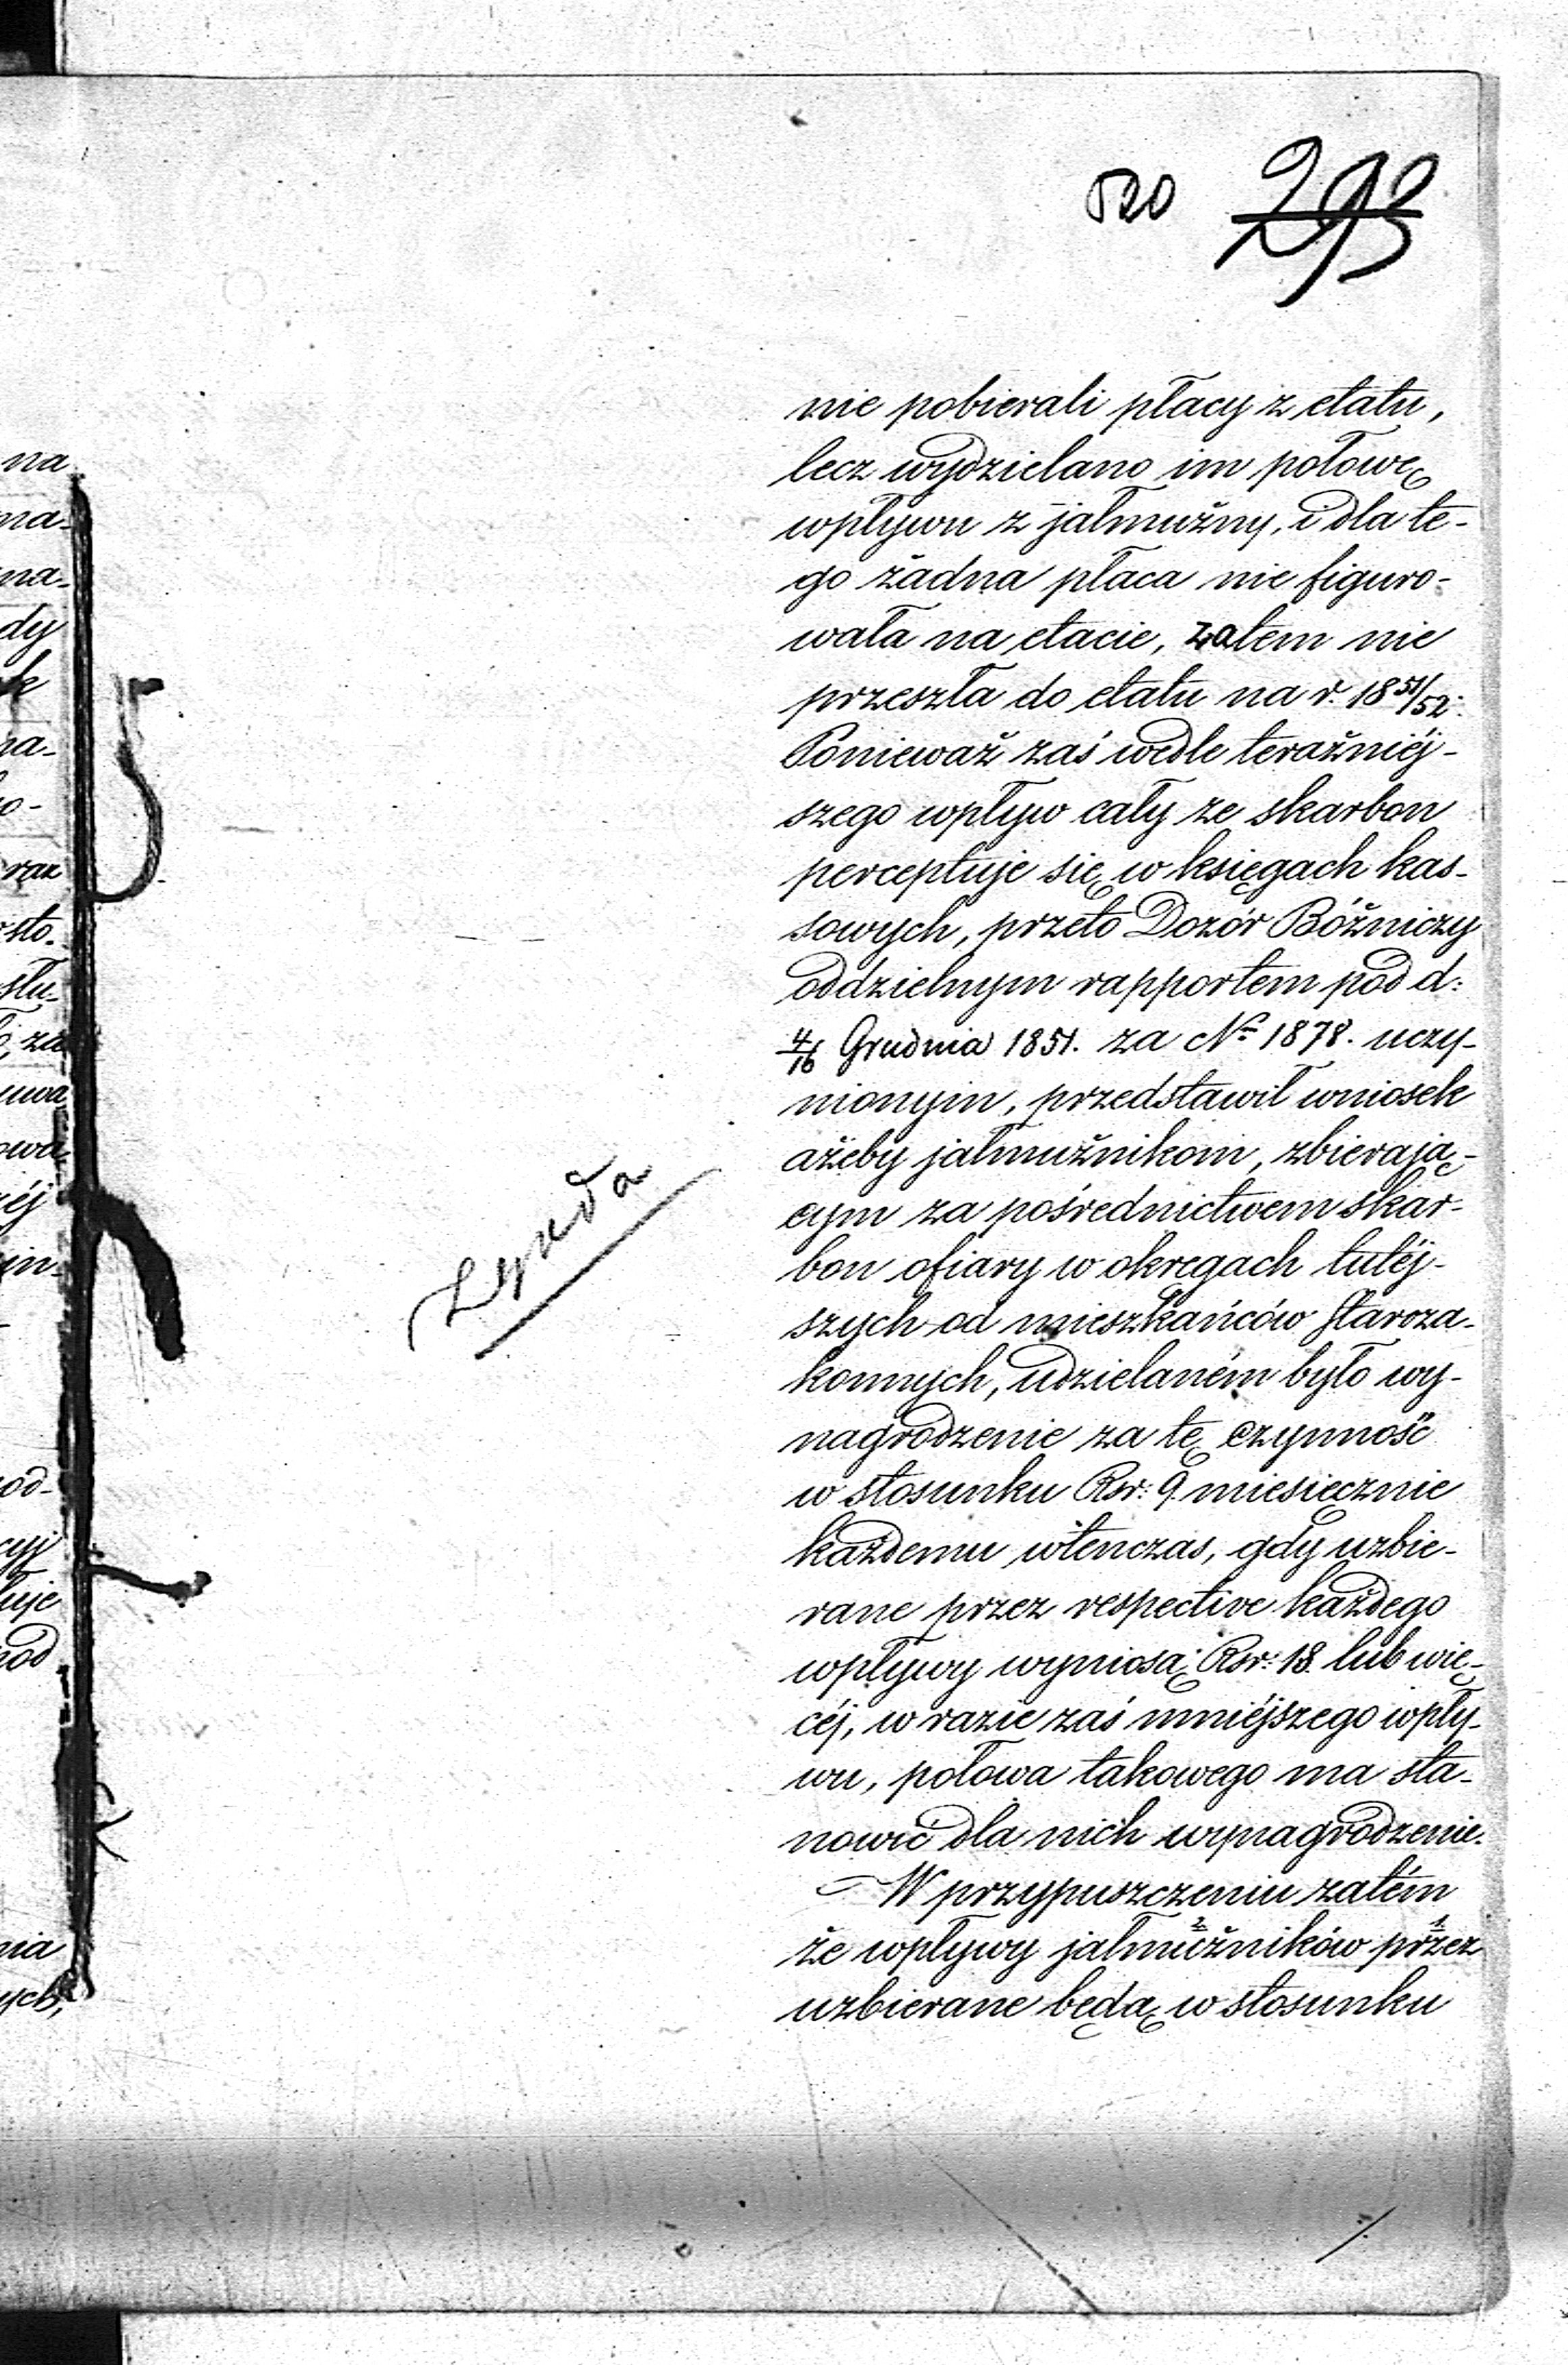 520 293
nie pobierali płacy z etatu,
lecz wydzielano im połowę
wpływu z jałmużny, i dla te-
go żadna płaca nie figuro-
wała na etacie, zatem nie
przeszła do etatu na r. 1851/52.
Ponieważ zaś wedle teraźniéj-
szego wpływ cały ze skarbon
perceptuje się w księgach kas-
sowych, przeto Dozór Bóżniczy
oddzielnym rapportem pod d:
4/16 Grudnia 1851. za No 1878. uczy-
nionym, przedstawił wniosek
ażeby jałmużnikom, zbierają-
cym za pośrednictwem skar-
bon ofiary w okręgach tutéj-
szych od mieszkańców Staroza-
konnych, udzielaném było wy-
nagrodzenie za tę czynność
w stosunku Rsr: 9. miesięcznie
każdemu wtenczas, gdy uzbie-
rane przez respective każdego
wpływy wyniosą Rsr: 18. lub wię-
céj, w razie zaś mniéjszego wpły-
wu, połowa takowego ma sta-
nowić dla nich wynagrodzenie.
W przypuszczeniu zatém
że wpływy jałmużników przez
uzbierane będą w stosunku
na
ma-
na-
dy
na-
raz
sto.
słu-
za
owa
éj
in-
od-
cyj
luje
nod
nia
ych,